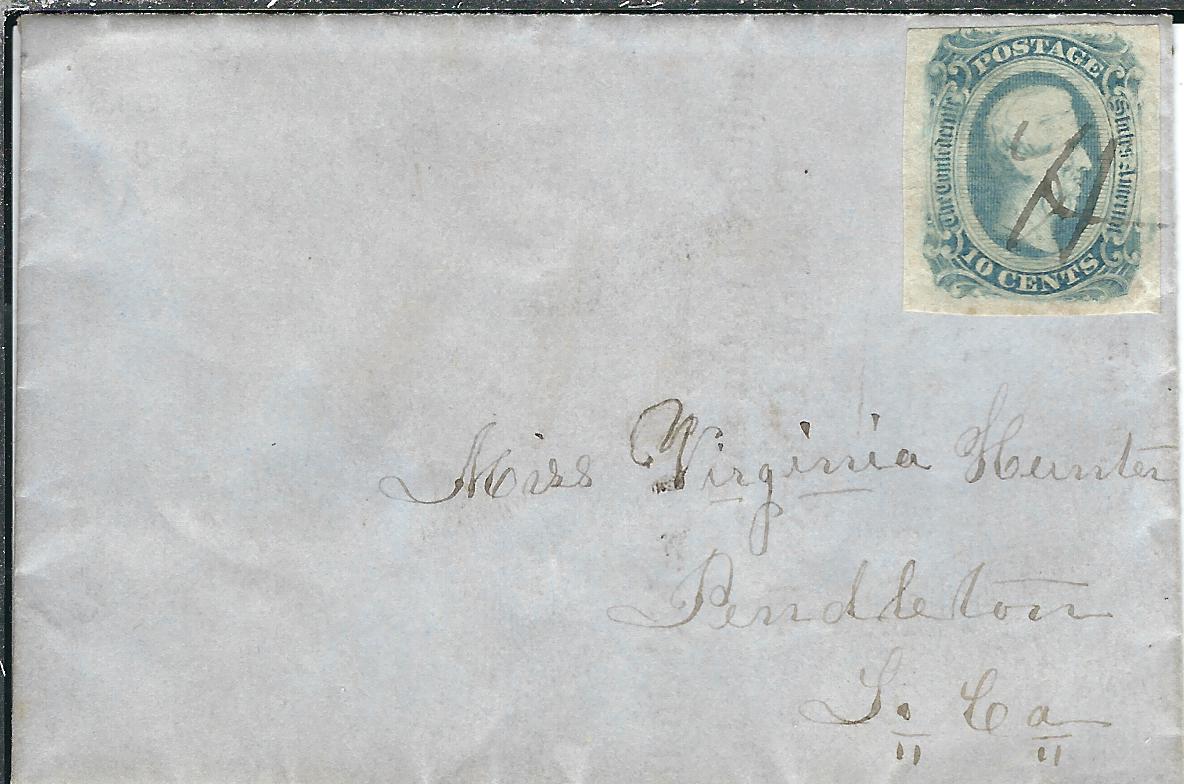 POSTAGE
The Confederate States America
10 CENTS
Miss Virginia Hunter
Pendleton
So. Ca